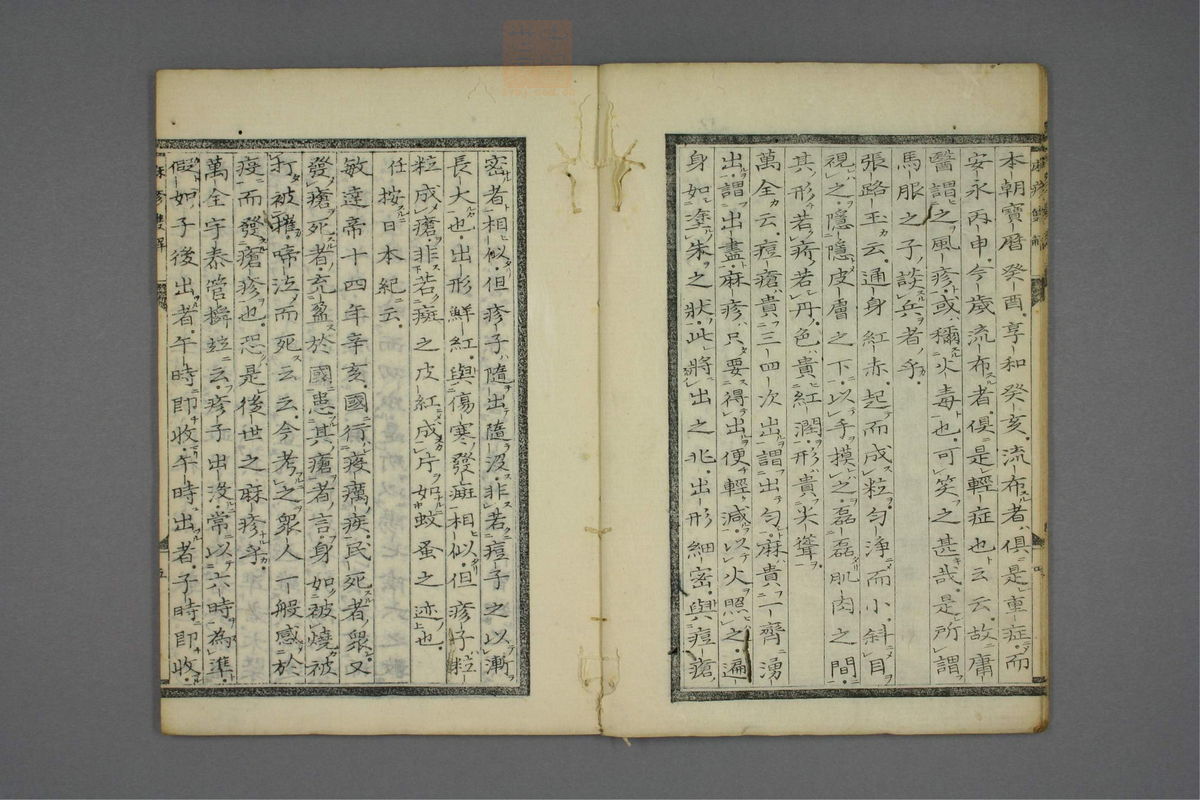 本朝寶暦癸酉享和癸亥流布者俱是重症而
安永丙申今歳流布者侵是輕症也云云故庸
醫謂之風疹或穪火毒也可笑之甚哉是所謂
馬服之子談兵者乎
張路玉云通身紅赤起而成粒勻浄而小斜目
視之隱隱皮膚之下以手摸之磊磊肌肉之間
其形若疥若丹色貴紅潤形貴尖聳
萬全云痘瘡貴三四次出謂出勻麻貴一齊湧
出謂出盡麻疹只要得出便輕減以火照之遍
身如塗朱之狀此將出之兆出形細密與痘瘡
密者相似但疹子隨出隨没非若痘子之以漸
長大也出形鮮紅與傷寒發斑相似但疹子粒
粒成瘡非若斑之皮紅成片如蚊蚤之迹也
任按日本紀云
敏達帝十四年辛亥國行疫癘疾民死者衆又
發瘡死者充盈於國患其瘡者言身如被燒被
打被摧啼泣而死云云今考之衆人一般感於
疫而發瘡疹也恐是後世之麻疹乎
萬全宇泰管橓竝云疹子出没常以六時為準
假如子後出者午時即收午時出者子時即收